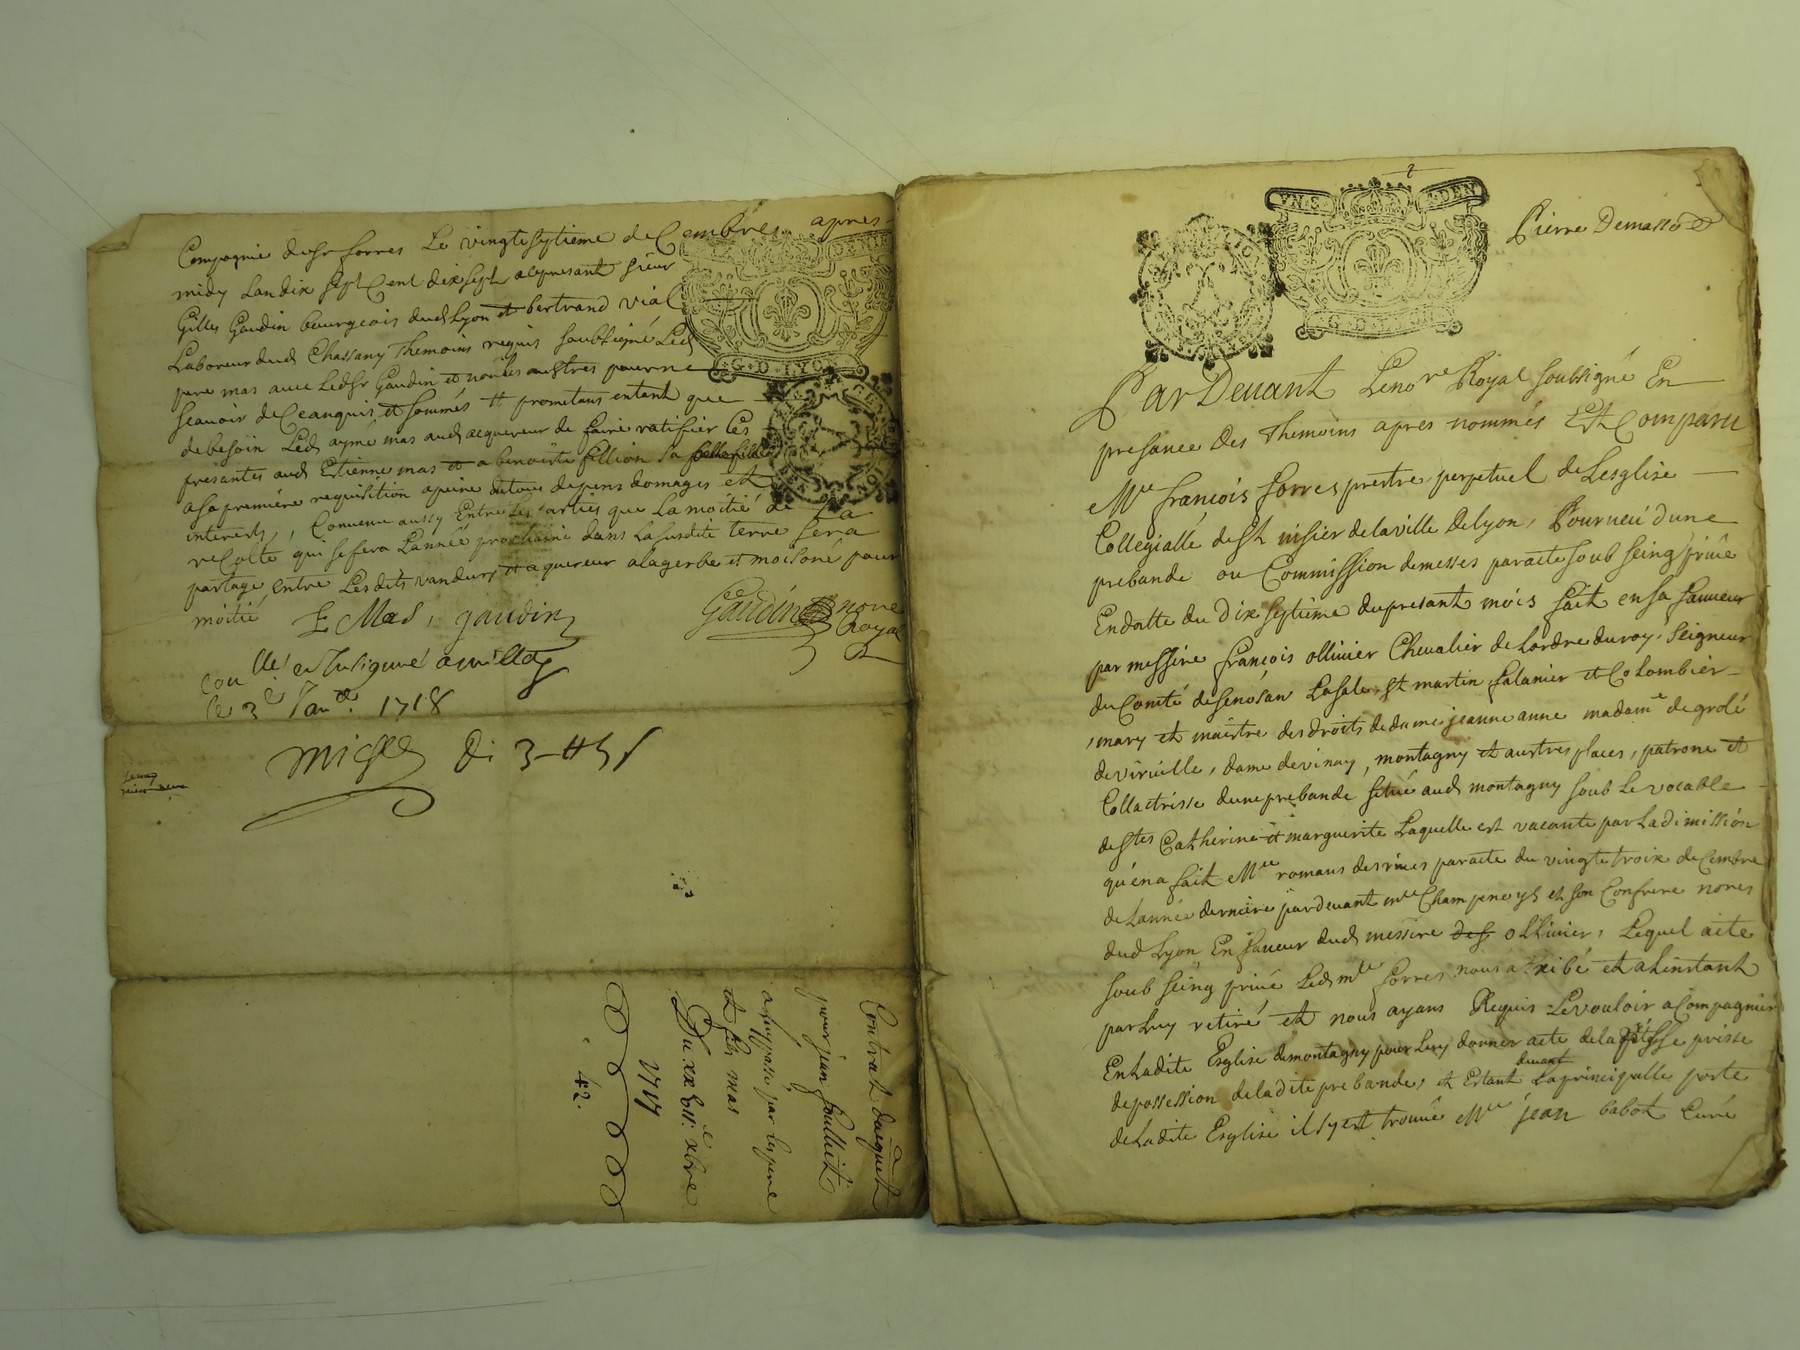 Compagnie de Sr forres Le vingtesytieme deCembres apres-
midy Landix sept Cent dixsept alepresant sieur
Gilles Gaudin bourgeois dud Lyon et bertrand vial
Laboreur dud Chassany Themoins requis soubsigné Led
pere mas avec Ledsr Gaudin et non les austres pour ne
scavoir de Ceanquis et sommés et prometans entant que
de besoin Led aymé mas aud acquereur de faire ratifier les
presantes aud Etienne mas et a benoiste fillion sa
a sa premiere requisition a peine de tous depens domages et
interests, Convenu aussy Entre les parties que La moitié de La
reColte qui se fera Lannéé prochaine dans La susdite terre sera
partage entre Lesdits vandurs et aquereur a lagerbe et moisoné pour
moitié
E Mas, gaudin
Gaudin nore
Royal
le 3e Janer 1718
Di 3
Contrat dacquet
pour jean
a luy passé par les pere
et fils mas
Du xxvii.e xbre
1717
42.
2
VN.S. .DEN
G.D.LYON
Pierre Demasso
Par Devant Lenore Royal soubsigné En
presance Des Themoins apres nommés Est Comparu
Mre francois forres prestre perpetuel de Lesglise
Collegiallé de St nisier de la ville De lyon, Pourneu dune
prebande ou Commission de messes par acte soub seing privé
En datte du Dix septième du presant mois fait en sa faveur
par messire francois ollivier Chevalier de Lordre du roy, Seigneur
du Comté de senosan Lasale, St martin salanier et Colombier
mary et maistre des droits de dame jeanne anne madame de grolé
de viriville, dame de vinay, montagny et austres places, patrone et
Collactrisse dune prebande situé aud montagny soub Le vocable
de Stes Catherine et marguerite Laquelle est vacante par La dimission
qu'en a fait Mre romans desrives par acte du vingte troix deCembre
de Lannéé derniere par devant mre Champeneys et son Confrere nores
dud Lyon En faveur dud messire des ollivier, Lequel acte
soub seing privé Led mre forres nous a exibé et a Linstant
par Luy retiré et nous ayans Requis Le vouloir aCompagnier
En Ladite Esglise de montagny pour Luy donner acte de la prisse
de possession de la dite prebande, et Estant devant La principalle porte
de Ladite Esglise il sy est trouvé Mre jean babot Curé